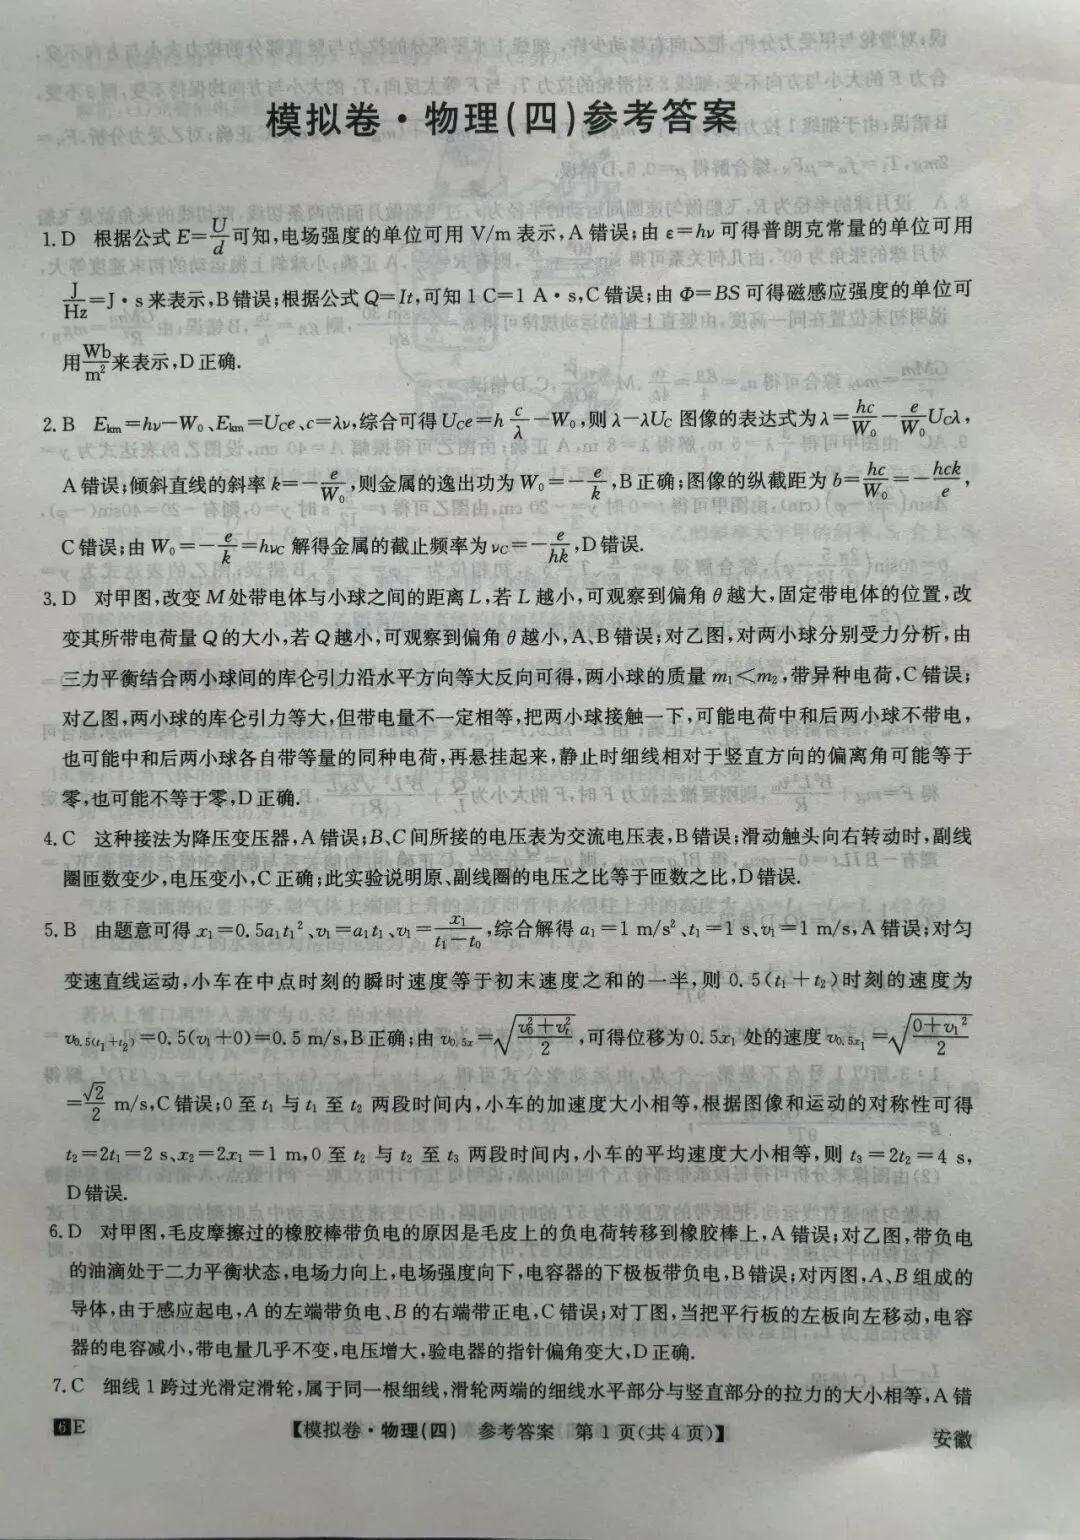 模拟卷·物理(四)参考答案
1. D 根据公式 E=U/d可知,电场强度的单位可用 V/m 表示,A 错误;由 ε=hν 可得普朗克常量的单位可用
J/Hz=J·s来表示,B错误;根据公式 Q=It,可知 1 C=1 A·s,C 错误;由 Φ=BS 可得磁感应强度的单位可
用Wb/m²来表示,D 正确.
2. B Ekm=hν−W₀、Ekm=Uce、c=λν,综合可得 Uce=h c/λ−W₀,则 λ−λUc 图像的表达式为 λ=hc/W₀−e/W₀ Ucλ,
A 错误;倾斜直线的斜率 k=−e/W₀,则金属的逸出功为 W₀=−e/k,B正确;图像的纵截距为 b=hc/W₀=−hck/e,
C 错误;由 W₀=−e/k=hνc 解得金属的截止频率为 νc=−e/hk,D错误.
3. D 对甲图,改变 M 处带电体与小球之间的距离 L,若 L 越小,可观察到偏角 θ 越大,固定带电体的位置,改
变其所带电荷量 Q 的大小,若 Q 越小,可观察到偏角 θ 越小,A、B 错误;对乙图,对两小球分别受力分析,由
三力平衡结合两小球间的库仑引力沿水平方向等大反向可得,两小球的质量 m₁<m₂,带异种电荷,C 错误;
对乙图,两小球的库仑引力等大,但带电量不一定相等,把两小球接触一下,可能电荷中和后两小球不带电,
也可能中和后两小球各自带等量的同种电荷,再悬挂起来,静止时细线相对于竖直方向的偏离角可能等于
零,也可能不等于零,D 正确.
4. C 这种接法为降压变压器,A 错误;B、C 间所接的电压表为交流电压表,B 错误;滑动触头向右转动时,副线
圈匝数变少,电压变小,C 正确;此实验说明原、副线圈的电压之比等于匝数之比,D 错误.
5. B 由题意可得 x₁=0.5a₁t₁²、v₁=a₁t₁、v₁=x₁/(t₁−t₀),综合解得 a₁=1 m/s²、t₁=1 s、v₁=1 m/s,A 错误;对匀
变速直线运动,小车在中点时刻的瞬时速度等于初末速度之和的一半,则 0.5(t₁+t₂)时刻的速度为
v0.5(t₁+t₂)=0.5(v₁+0)=0.5 m/s,B 正确;由 v0.5x=√((v₀²+vt²)/2),可得位移为 0.5x₁ 处的速度 v0.5x₁=√((0+v₁²)/2)
=√2/2 m/s,C 错误;0 至 t₁ 与 t₁ 至 t₂ 两段时间内,小车的加速度大小相等,根据图像和运动的对称性可得
t₂=2t₁=2 s、x₂=2x₁=1 m,0 至 t₂ 与 t₂ 至 t₃ 两段时间内,小车的平均速度大小相等,则 t₃=2t₂=4 s,
D 错误.
6. D 对甲图,毛皮摩擦过的橡胶棒带负电的原因是毛皮上的负电荷转移到橡胶棒上,A 错误;对乙图,带负电
的油滴处于二力平衡状态,电场力向上,电场强度向下,电容器的下极板带负电,B 错误;对丙图,A、B 组成的
导体,由于感应起电,A 的左端带负电、B 的右端带正电,C 错误;对丁图,当把平行板的左板向左移动,电容
器的电容减小,带电量几乎不变,电压增大,验电器的指针偏角变大,D 正确.
7. C 细线 1 跨过光滑定滑轮,属于同一根细线,滑轮两端的细线水平部分与竖直部分的拉力的大小相等,A 错
6 E 【模拟卷·物理(四) 参考答案 第 1 页(共 4 页)】 安徽